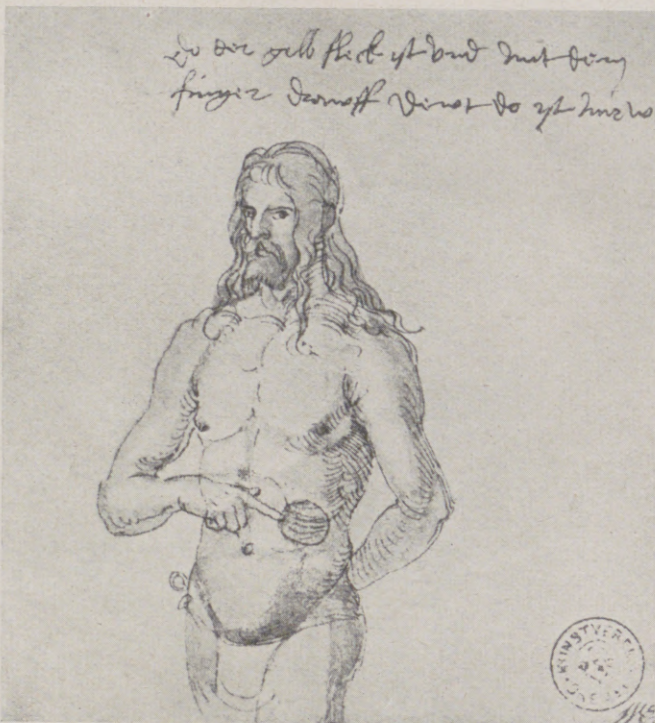 Do der gelb fleck ist vnd mit dem
finger drawff dewt do ist mir w
KUNSTVEREI